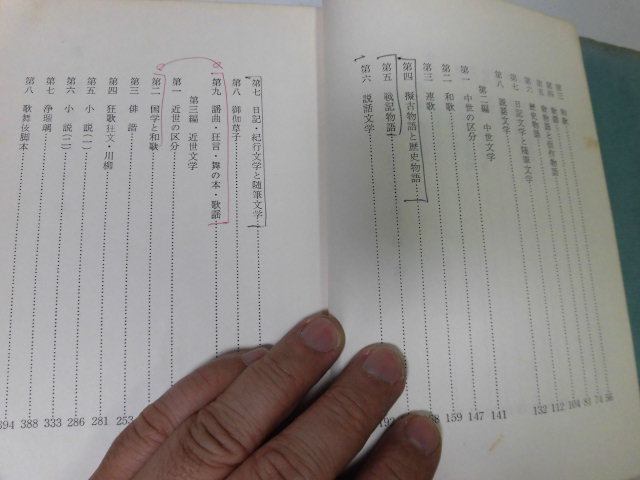 第三 和歌 56
第四 物語 74
第五 歌物語と伝奇物語 81
歴史物語 104
第六 112
第七 日記文学と随筆文学 132
第八 説話文学
第二編 中世文学 141
第一 中世の区分 147
第二 和歌 159
第三 連歌
第四 擬古物語と歴史物語
第五 戦記物語
第六 説話文学
第七 日記・紀行文学と随筆文学
第八 御伽草子
第九 謡曲・狂言・舞の本・歌謡
第三編 近世文学
第一 近世の区分
第二 国学と和歌
第三 俳諧 253
第四 狂歌狂文・川柳 281
第五 小説(一) 286
第六 小説(二) 333
第七 浄瑠璃 388
第八 歌舞伎脚本 394